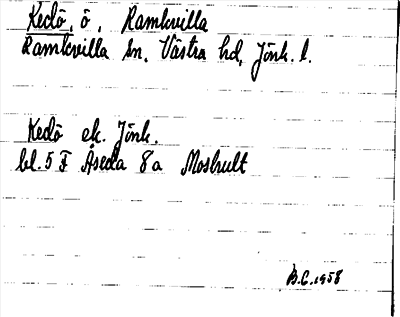 Kedö, ö, Ramkvilla
Ramkvilla sn, Västra hd, Jönk. l.
Kedö ek. Jönk.
bl. 5 F Åseda 8 a Moshult
B.C. 1958